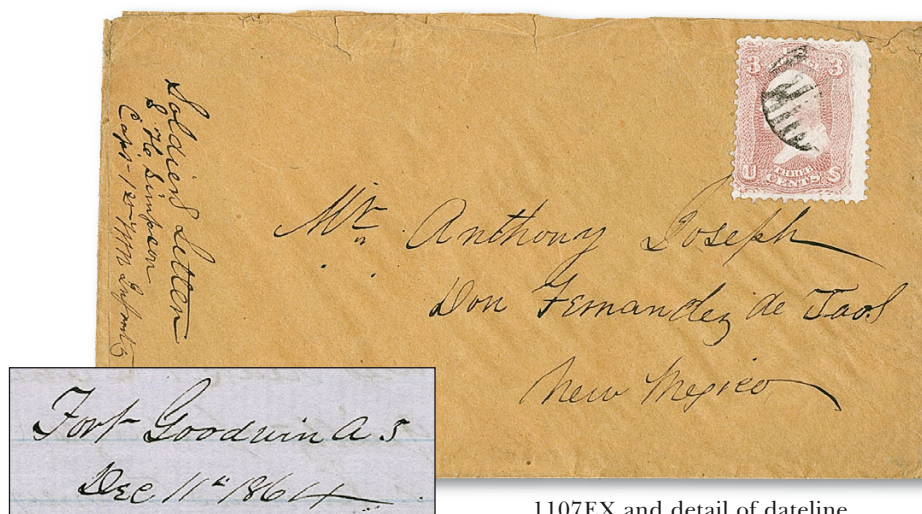 Soldiers Letter
S. H. Simpson
Capt 1st NM Infanty
3 3
U THREE S
CENTS
Mr. Anthony Joseph
Don Fernandez de Taos
New Mexico
Fort Goodwin A. S
Dec 11th 1864
1107EX and detail of dateline